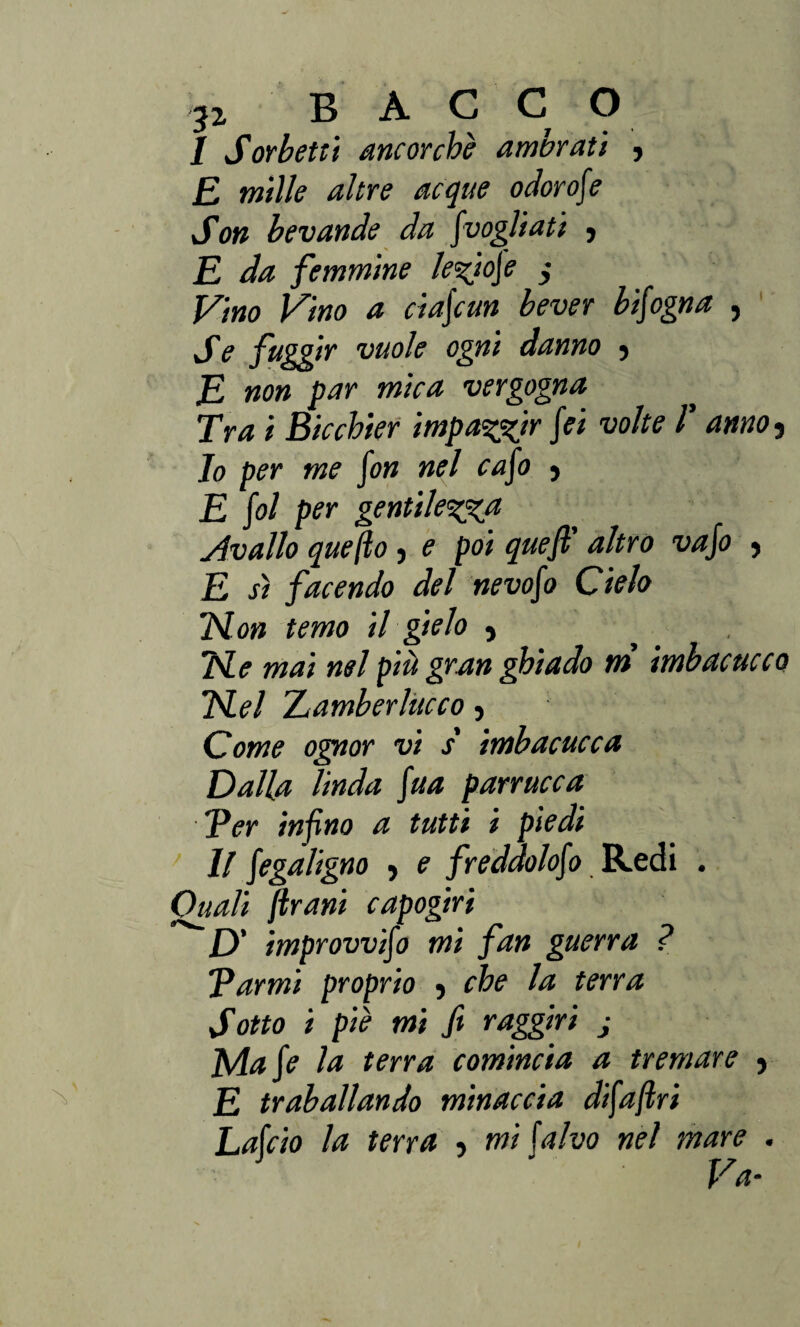 32 BACCO
I Sorbetti ancorchè ambrati ,
E mille altre acque odoroſe
Son bevande da ſvogliati ,
E da femmine lezioſe ;
Vino Vino a ciaſcun bever biſogna ,
Se fuggir vuole ogni danno ,
E non par mica vergogna
Tra i Bicchier impazzir ſei volte l' anno,
Io per me ſon nel caſo ,
E ſol per gentilezza
Avallo queſto , e poi queſt' altro vaſo ,
E sì facendo del nevoſo Cielo
Non temo il gielo ,
Ne mai nel più gran ghiado m' imbacucco
Nel Zamberlucco ,
Come ognor vi s' imbacucca
Dalla linda ſua parrucca
Per infino a tutti i piedi
Il ſegaligno , e freddoloſo Redi .
Quali ſtrani capogiri
D' improvviſo mi fan guerra ?
Parmi proprio , che la terra
Sotto i piè mi ſi raggiri ;
Ma ſe la terra comincia a tremare ,
E traballando minaccia diſaſtri
Laſcio la terra , mi ſalvo nel mare .
Va-